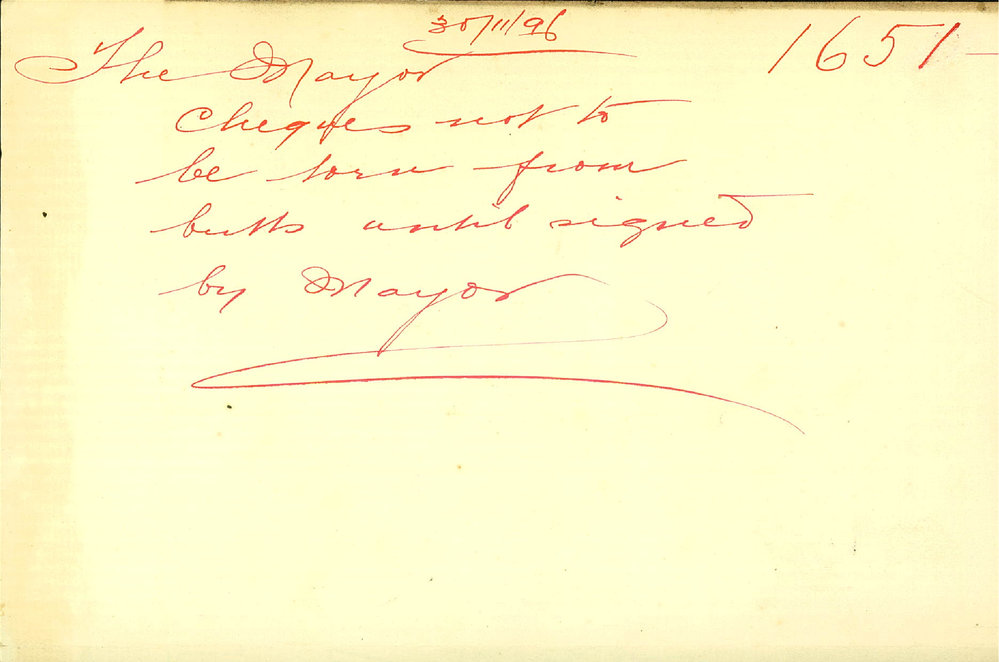 30/11/96
1651
The Mayor
Cheques not to
be torn from
butts until signed
by Mayor